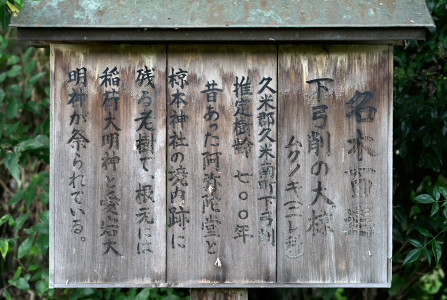 名木百選
下弓削の大椋
ムクノキ(ニレ科)
久米郡久米南町下弓削
推定樹齢 七〇〇年
昔あった阿弥陀堂と
椋本神社の境内跡に
残る老樹で、根元には
稲荷大明神と愛宕大
明神が祭られている。